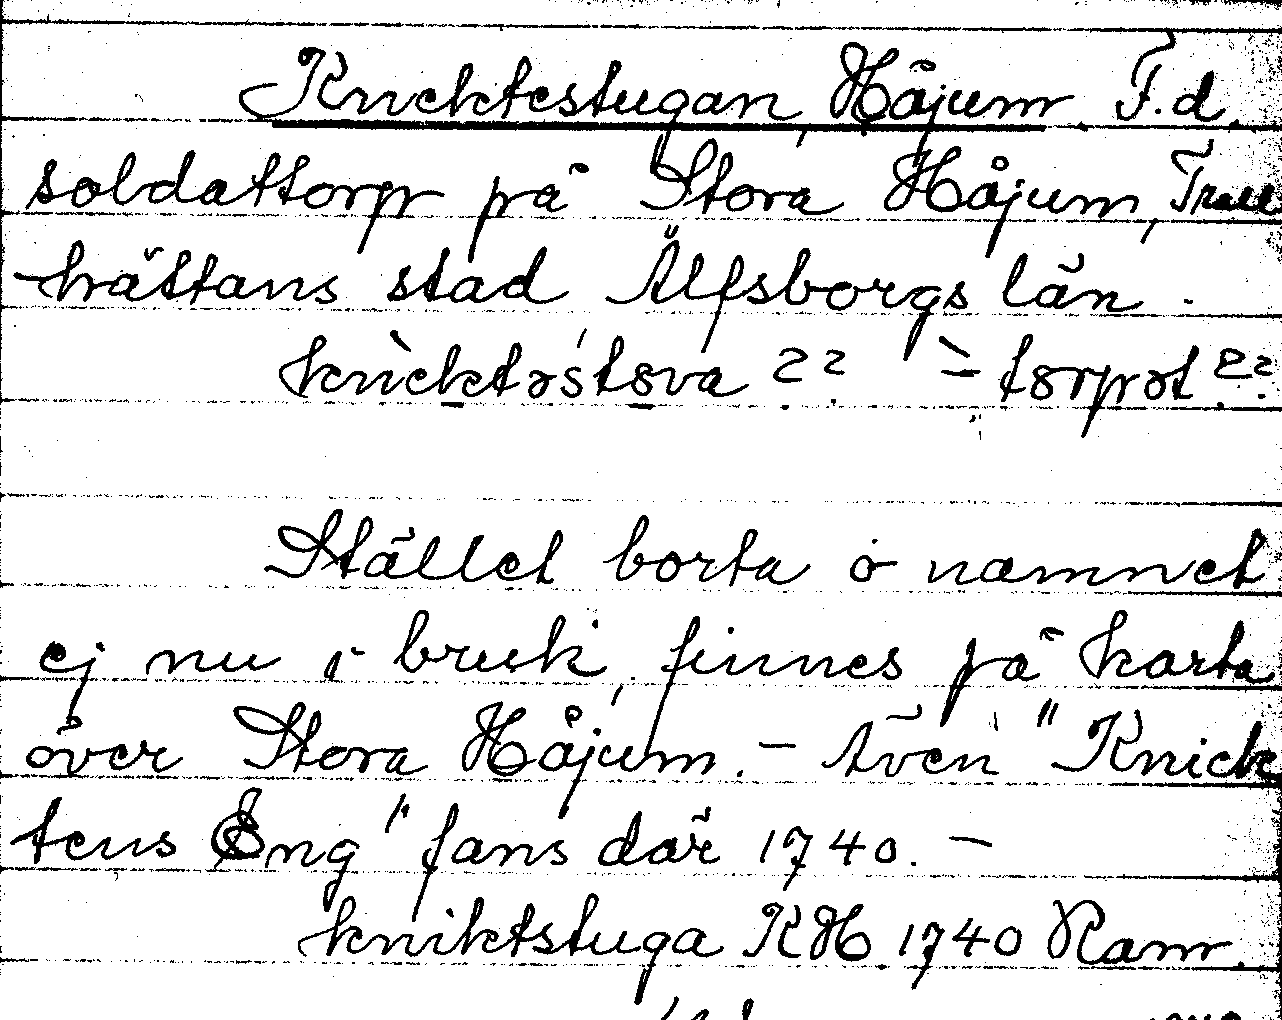 Knektestugan, Håjum. F.d.
soldattorp på Stora Håjum, Troll
hättans stad Älfsborgs län.
knìcktəs´tova 22 ̀- torpət 22
Stället borta o namnet
ej nu i bruk, finnes på karta
över Stora Håjum. – Även "Knick
tens Eng" fans där 1740. –
kniktstuga KH 1740 Ram.